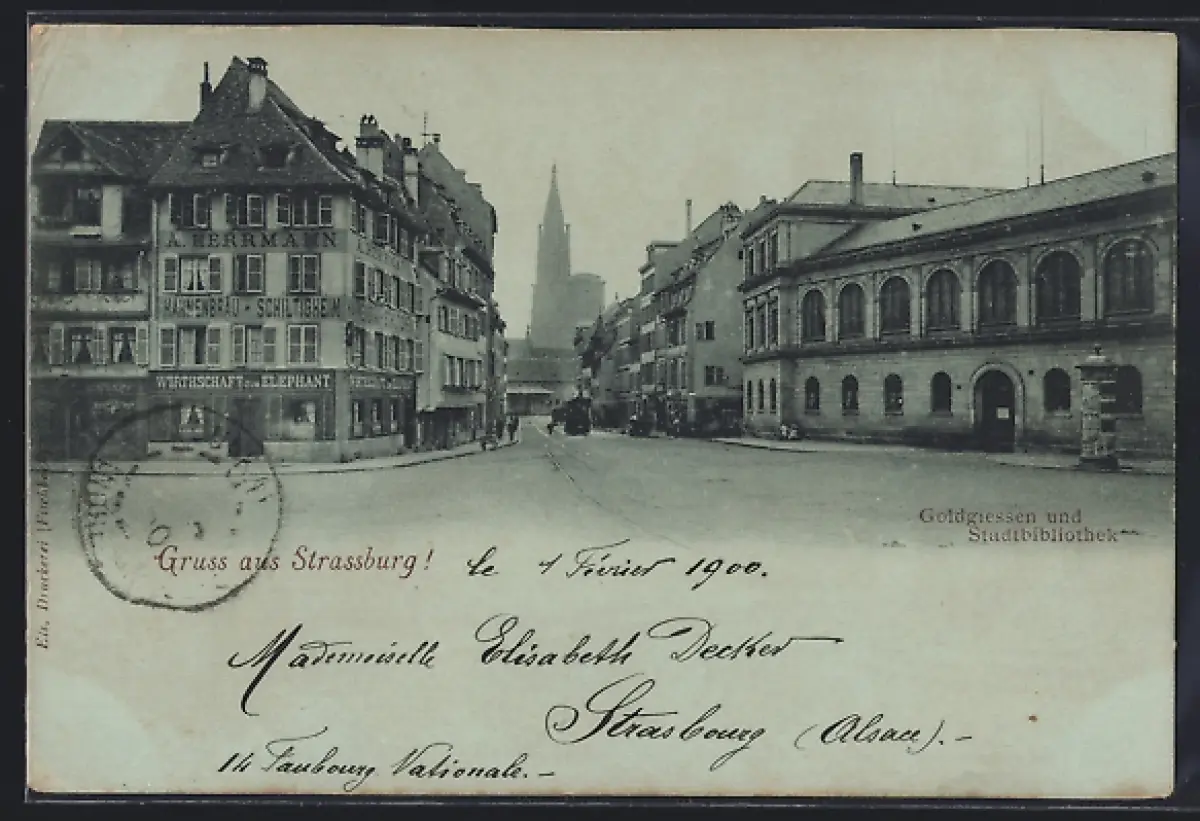 A. HERRMANN
HANNENBRÄU - SCHILTIGHEIM
WIRTHSCHAFT ZUM ELEPHANT
Goldgiessen und
Stadtbibliothek
Gruss aus Strassburg! le 1 Février 1900.
Mademoiselle Elisabeth Decker
Strasbourg (Alsace).-
14 Faubourg Nationale.-
Els. Druckerei